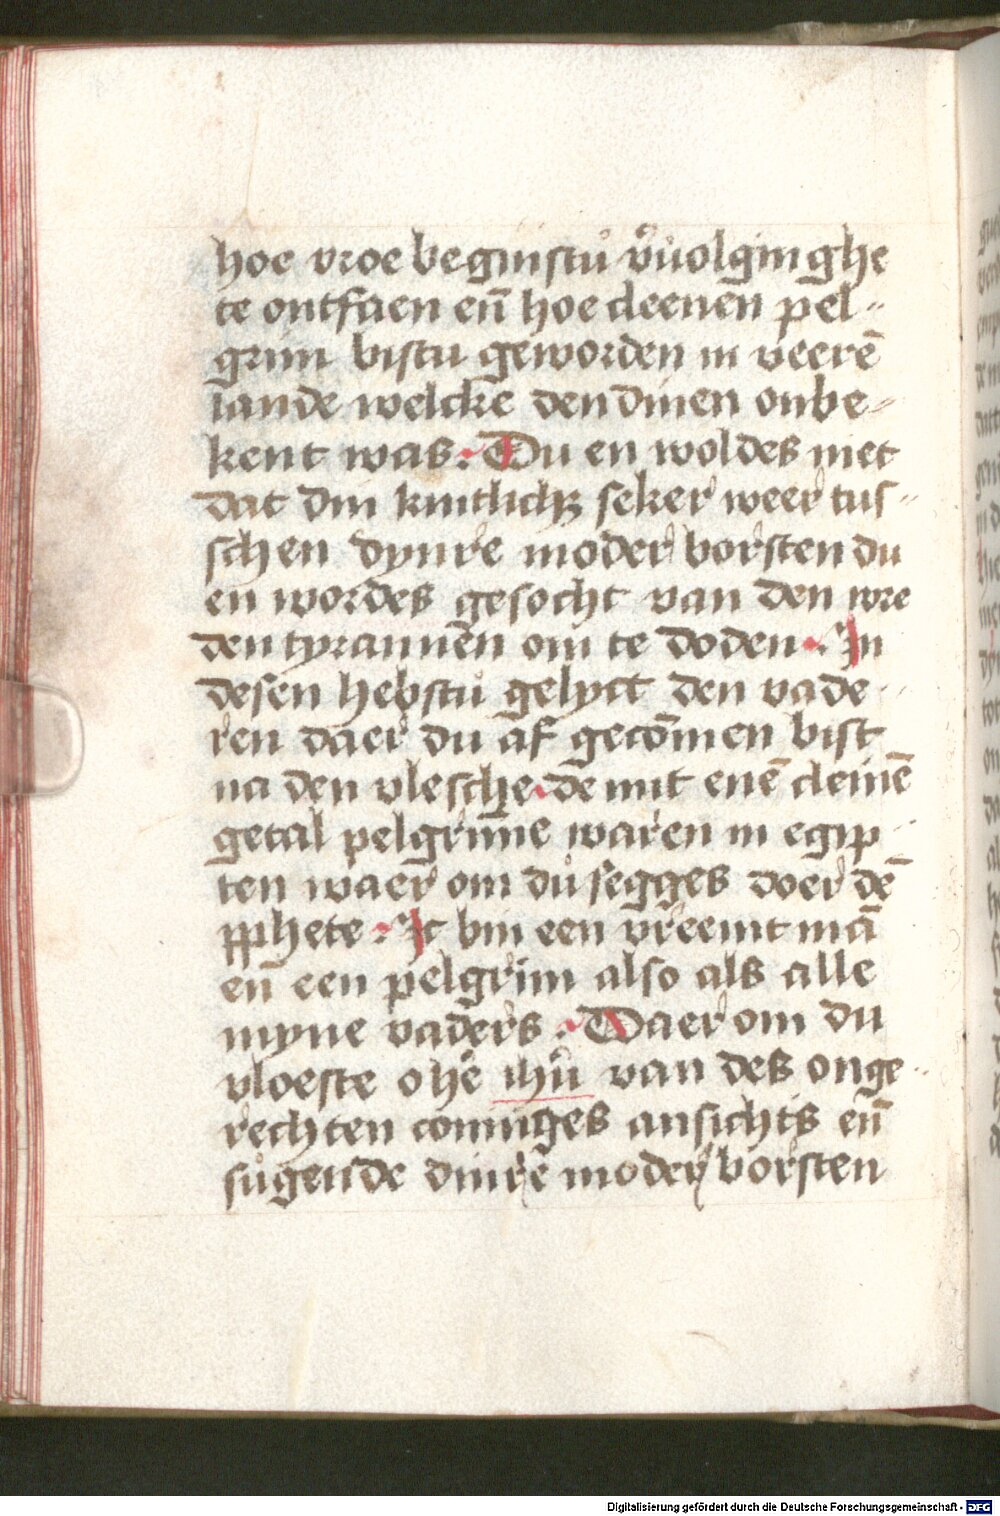 hoe vroe beginstu v̄uolginghe
te ontfaen en̄ hoe cleenen pel-
grim bistu geworden in veerē
lande welcke den dinen onbe-
kent was. Du en woldes niet
dat din kintlichꝫ seker weer tus-
schen dynre moder borsten du
en wordes gesocht van den wre
den tyrannen om te doden. In
desen hebstu gelyct den vade-
ren daer du af gecōmen bist
na den vlesche. de mit enē cleinē
getal pelgrīme waren in egip-
ten waer om du segges doer dē
ꝓphete. Ic bin een vreemt mā
en̄ een pelgrim also als alle
myne vaders. Waer om du
vloeste o hē ihū van des onge-
rechten coninges ansichts en̄
sugende dinre moder borsten
Digitalisierung gefördert durch die Deutsche Forschungsgemeinschaft - DFG